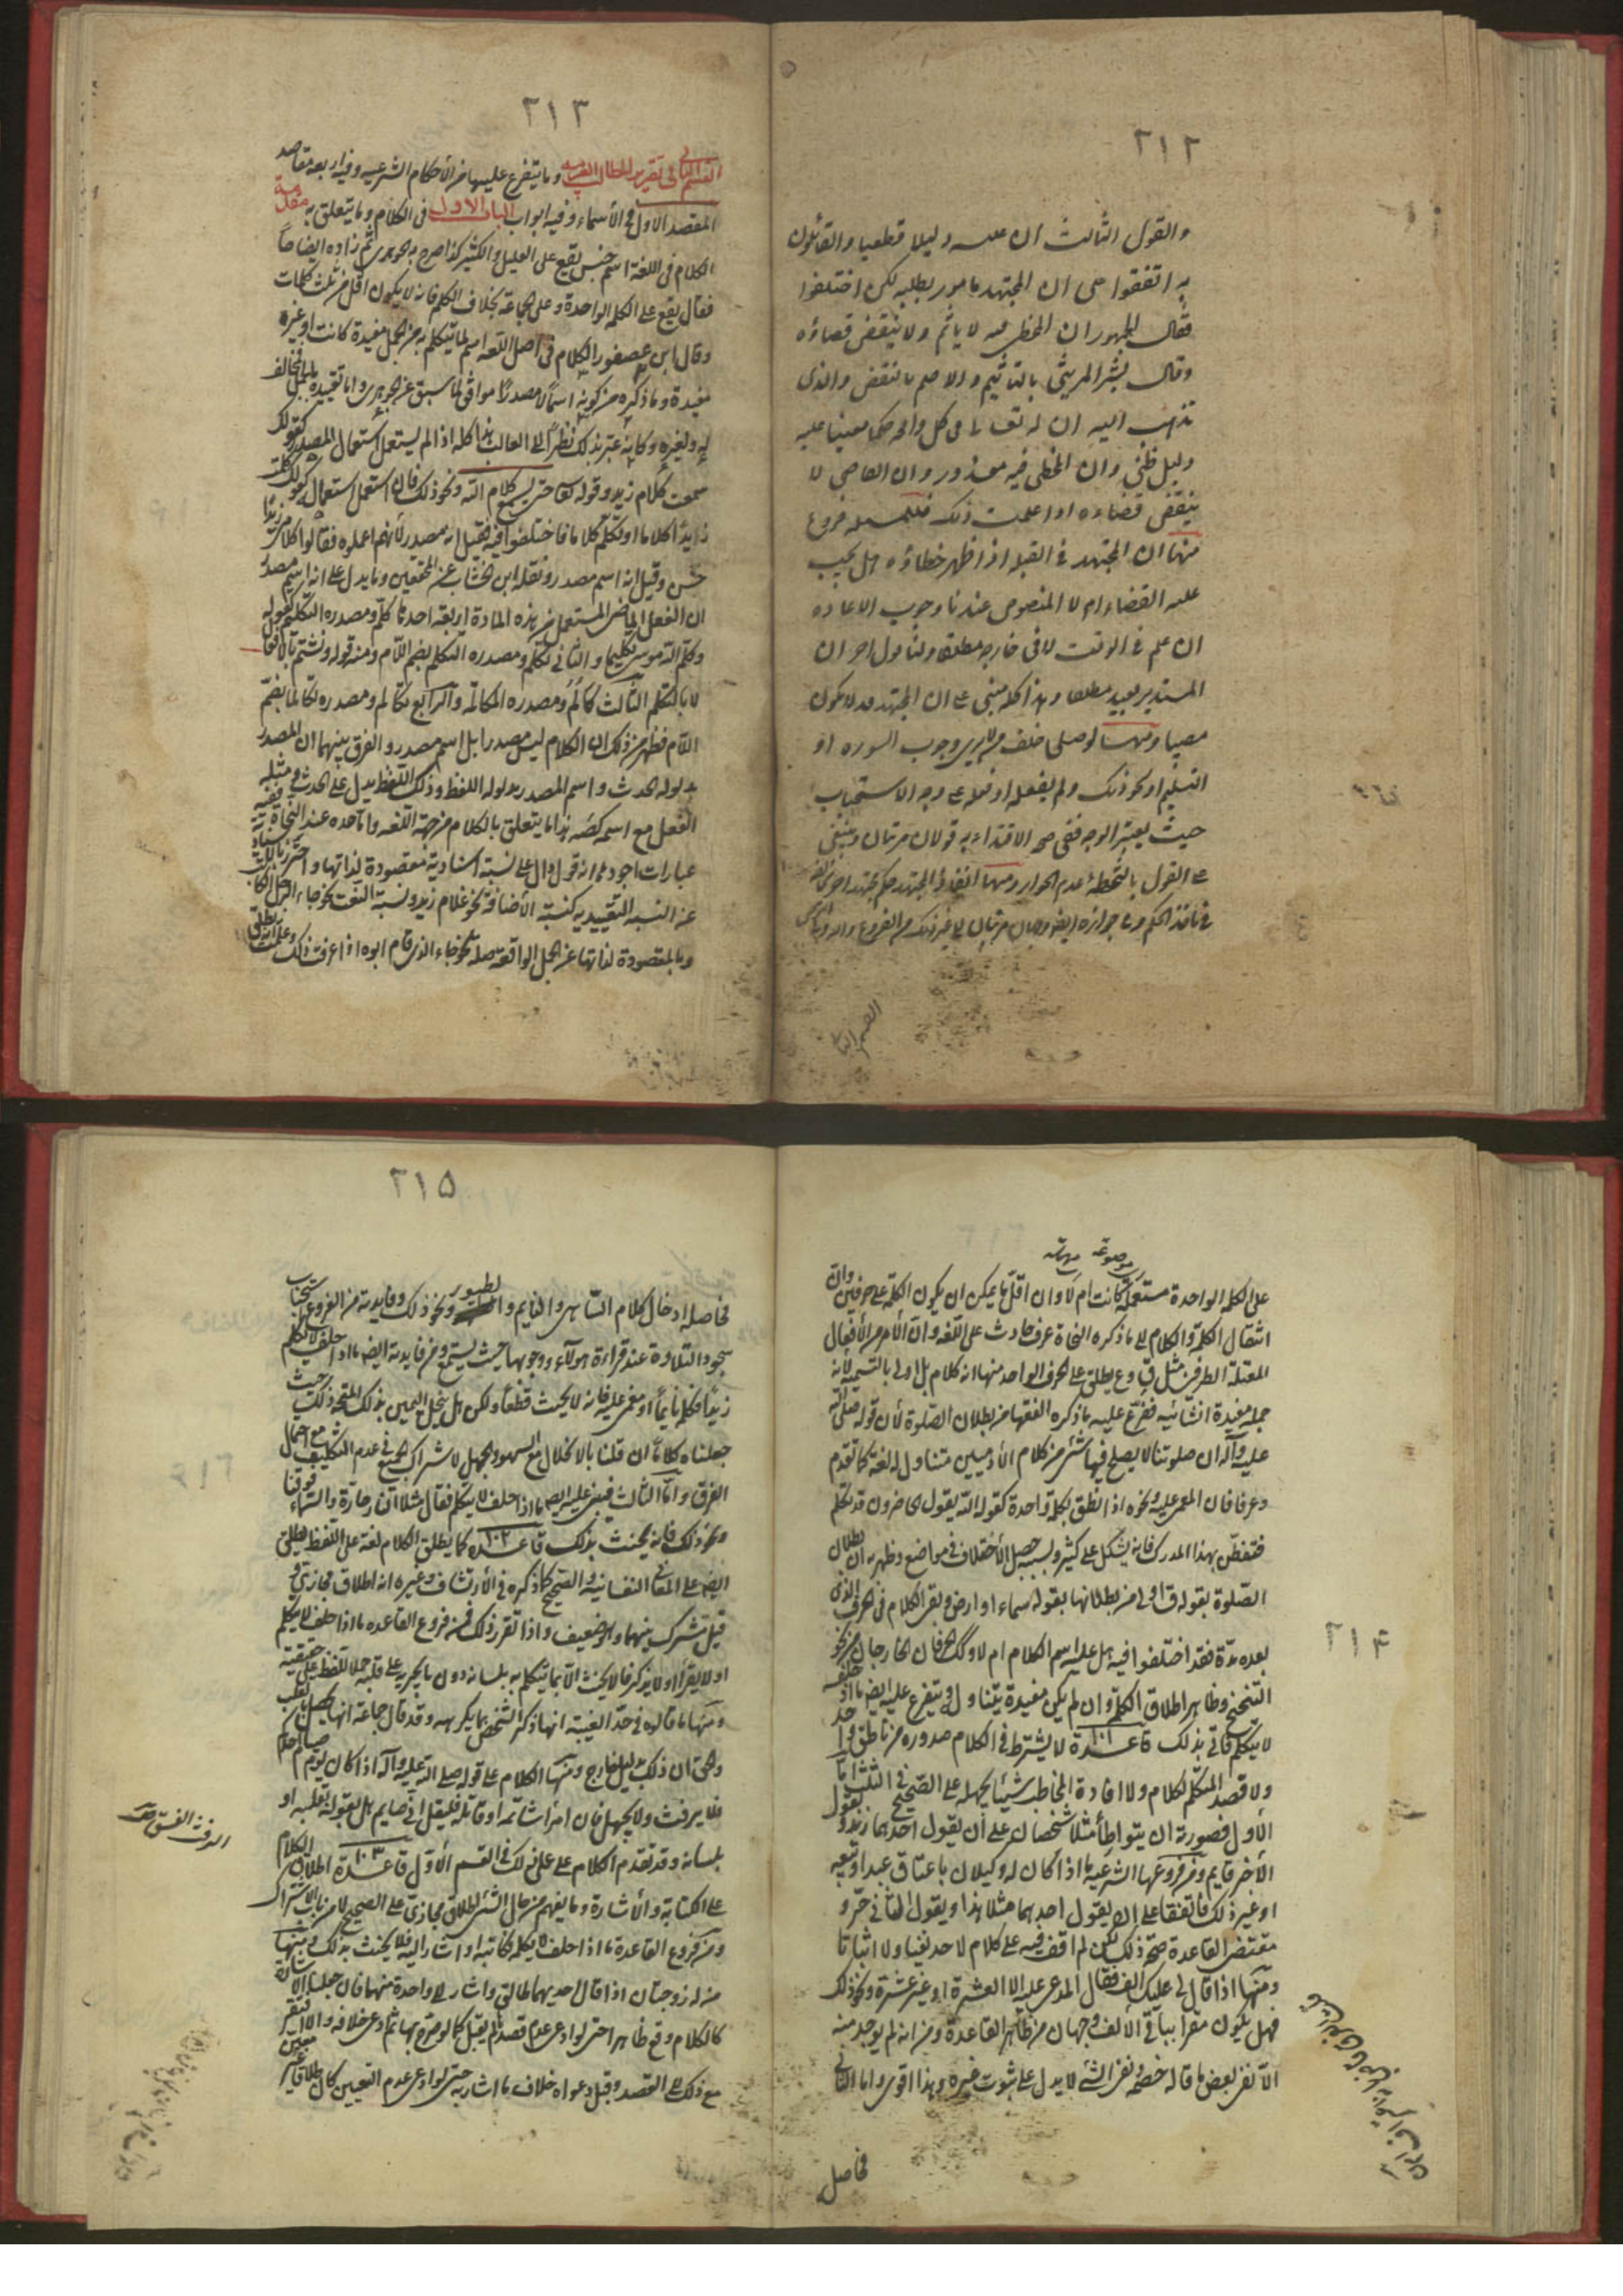 ٢١٢
والقول الثالث ان عليه دليلا قطعيا والقائلون
به اتفقوا على ان المجتهد مامور بطلبه لكن اختلفوا
فقال الجمهور ان المخطى فيه لا ياثم ولا ينقض قضاؤه
وقال بشر المريسى بالتاثيم والاصم بالنقض والذى
نذهب اليه ان لله تعالى فى كل واقعة حكما معينا عليه
دليل ظنى وان المخطى فيه معذور وان القاضى لا
ينقض قضاءه اذا علمت ذلك فللمسئلة فروع
منها ان المجتهد فى القبلة اذا ظهر خطاؤه هل يجب
عليه القضاء ام لا المنصوص عندنا وجوب الاعادة
ان علم فى الوقت لا فى خارجه مطلقا ولنا قول اخر ان
المستدبر يعيد مطلقا وهذا كله مبنى على ان المجتهد قد لا يكون
مصيبا ومنها لو صلى خلف من لا يرى وجوب السورة او
التسليم او نحو ذلك ولم يفعله او فعله على وجه الاستحباب
حيث يعتبر الوجه ففى صحة الاقتداء به قولان مرتبان وينبغى
على القول بالتخطئة عدم الجواز ومنها انفاذ المجتهد حكم مجتهد اخر
٢١٣
القسم الثانى فى تقرير المطالب العربية وما يتفرع عليها من الأحكام الشرعية وفيه اربعة مقاصد
المقصد الاول فى الأسماء وفيه ابواب الباب الاول فى الكلام وما يتعلق به مقدمة
الكلام فى اللغة اسم جنس يقع على القليل والكثير كذا صرح به الجوهرى ثم زاده ايضاحاً
فقال يقع على الكلمة الواحدة وعلى الجماعة بخلاف الكلم فانه لا يكون اقل من ثلث كلمات
وقال ابن عصفور الكلام فى اصل اللغة اسم لما يتكلم به من الجمل مفيدة كانت او غير
مفيدة وما ذكره من كونه اسماً لا مصدراً موافق لما سبق عن الجوهرى واما تقييده بالجمل فمخالف
له ولغيره وكانه عبر بذلك نظراً الى الغالب هذا كله اذا لم يستعمل استعمال المصدر كقولك
سمعت كلام زيد وقوله تعالى حتى يسمع كلام الله ونحو ذلك فان استعمل استعماله كقولك كلمت
زيداً كلاما او تكلم كلاما فاختلفوا فيه فقيل انه مصدر لأنهم اعملوه فقالوا كلامى زيداً
حسن وقيل انه اسم مصدر ونقله ابن الخشاب عن المحققين ومما يدل على انه اسم مصدر
ان الفعل الماضى المستعمل من هذه المادة اربعة احدها كلّم ومصدره التكليم كقوله
وكلّم الله موسى تكليما والثانى تكلّم ومصدره التكلّم بضم اللام ومنه قوله ونشتم بالأفعال
لا بالتكلم الثالث كالَمَ ومصدره المكالمة والرابع تكالم ومصدره تكالما بضمّ
اللام فظهر من ذلك ان الكلام ليس مصدرا بل اسم مصدر والفرق بينهما ان المصدر
مدلوله الحدث واسم المصدر مدلوله اللفظ وذلك اللفظ يدل على الحدث
الفعل مع اسمه كصَه هذا ما يتعلق بالكلام من جهة اللغة واما حده عند النحاة ففيه
عبارات اجودها انه قول دال على نسبة اسنادية مقصودة لذاتها واحترز بالاسنادية
عن النسبة التقييدية كنسبة الأضافة نحو غلام زيد ونسبة النعت نحو جاء الرجل الكاتب
وبالمقصودة لذاتها عن الجمل الواقعة صلة نحو جاء الذى قام ابوه اذا عرفت ذلك وعلمت انه يطلق
٢١٤
على الكلمة الواحدة مستعملة كانت ام لا وان اقل ما يمكن ان يكون الكلمة على حرفين وان
انتقال الكلمة والكلام الى ما ذكره النحاة عرف حادث على اللغة وان الأمر من الأفعال
المعتلة الطرفين مثل قِ وعِ يطلق على الحرف الواحد منها انه كلام بل اولى بالتسمية لأنه
جملة مفيدة انشائية ففرّع عليه ما ذكره الفقهاء من بطلان الصلوة لأن قوله صلى الله
عليه وآله ان صلوتنا لا يصلح فيها شئ من كلام الأدميين متناول له لغة كما تقدم
وعرفا فان المغمى عليه ونحوه اذا نطق بكلمة واحدة كقوله الله يقول الحاضرون قد تكلم
فتفطن بهذا المدرك فانه يشكل على كثير وبسببه حصل الأختلاف فى مواضع وظهر به ان بطلان
الصلوة بقوله قِ اولى من بطلانها بقوله سماء او ارض وبقى الكلام فى الحرف الذى
بعده مدّة فقد اختلفوا فيه هل عليه اسم الكلام ام لا وكذلك الحرفان الخارجان من نحو
التنحنح وظاهر اطلاق الكلمة وان لم يكن مفيدة يتناوله ويتفرع عليه ايضا ما اذا حلف
لا يتكلم فاتى بذلك قاعدة ١٠١ لا يشترط فى الكلام صدوره من ناطق واحد
ولا قصد المتكلم لكلامه ولا افادة المخاطب شيئا يجهله على الصحيح فى الثلثة اما
الأول فصورته ان يتواطأ مثلا شخصان على أن يقول احدهما زيد ويقول
الأخر قايم ومن فروعها الشرعية ما اذا كان له وكيلان باعتاق عبد او بيعه
او غير ذلك فاتفقا على ان يقول احدهما مثلا هذا ويقول الثانى حرّ و
مقتضى القاعدة صحة ذلك لكن لم اقف فيه على كلام لاحد نفيا ولا اثباتا
ومنها اذا قال لى عليك الف فقال المدعى عليه الا عشرة او غير عشرة ونحو ذلك
فهل يكون مقرا بباقى الألف وجهان من ظاهر القاعدة ومن انه لم يوجد منه
الّا نفى بعض ما قاله خصمه ونفى الشئ لا يدل على ثبوت غيره وهذا اقوى واما الثانى
فحاصل
٢١٥
فحاصله ادخال كلام الساهى والنايم والطيور ونحو ذلك وفايدته من الفروع استحباب
سجود التلاوة عند قراءة هولاء ووجوبها حيث يستمع ومن فايدته ايضا ما اذا حلف لا يكلم
زيداً فكلمه نايماً او مغمى عليه فانه لا يحنث قطعاً ولكن هل ينحل اليمين بذلك المتجه ذلك حيث
جعلناه كلاماً ان قلنا بالانحلال مع السهو والجهل لاشتراك الجميع فى عدم التكليف مع احتمال
الفرق وامّا الثالث فيبنى عليه ايضا ما اذا حلف لا يتكلم فقال مثلا النار حارة والسماء فوقنا
ونحو ذلك فانه يحنث بذلك قاعدة ١٠٢ كما يطلق الكلام لغة على اللفظ يطلق
ايضا على المعانى النفسانية والصحيح كما ذكره فى الأرتشاف وغيره انه اطلاق مجازى و
قيل مشترك بينهما وهو ضعيف واذا تقرر ذلك فمن فروع القاعدة ما اذا حلف لا يتكلم
او لا يقرأ او لا يذكر فانه لا يحنث الّا بما يتكلم به بلسانه دون ما يجريه على قلبه حملا للفظ على حقيقته
ومنها ما قالوه فى حدّ الغيبة انها ذكر الشخص بما يكرهه وقد قال جماعة انها يحصل بالقلب
والحق ان ذلك بدليل خارج ومنها الكلام على قوله صلى الله عليه وآله اذا كان يوم صيام احدكم
فلا يرفث ولا يجهل فان امرا شاتمه او قاتله فليقل انى صايم هل يقوله بقلبه او
بلسانه وقد تقدم الكلام على ذلك فى القسم الأول قاعدة ١٠٣ اطلاق الكلام
على الكتابة والأشارة وما يفهم من حال الشئ اطلاق مجازى على الصحيح لا من باب الاشتراك
ومن فروع القاعدة ما اذا حلف لا يكلمه فكاتبه او اشار اليه فلا يحنث بذلك ومنها
من له زوجتان اذا قال احديهما طالق واشار الى واحدة منهما فان جعلنا الاشارة
كالكلام وقع ظاهرا حتى لو ادعى عدم قصدها لم يقبل كما لو صرح بها ثم ادعى خلافه والا افتقر
مع ذلك الى القصد وقبل دعواه خلاف ما اشار به حتى لو ادعى عدم التعيين كان طلاقا غير معين